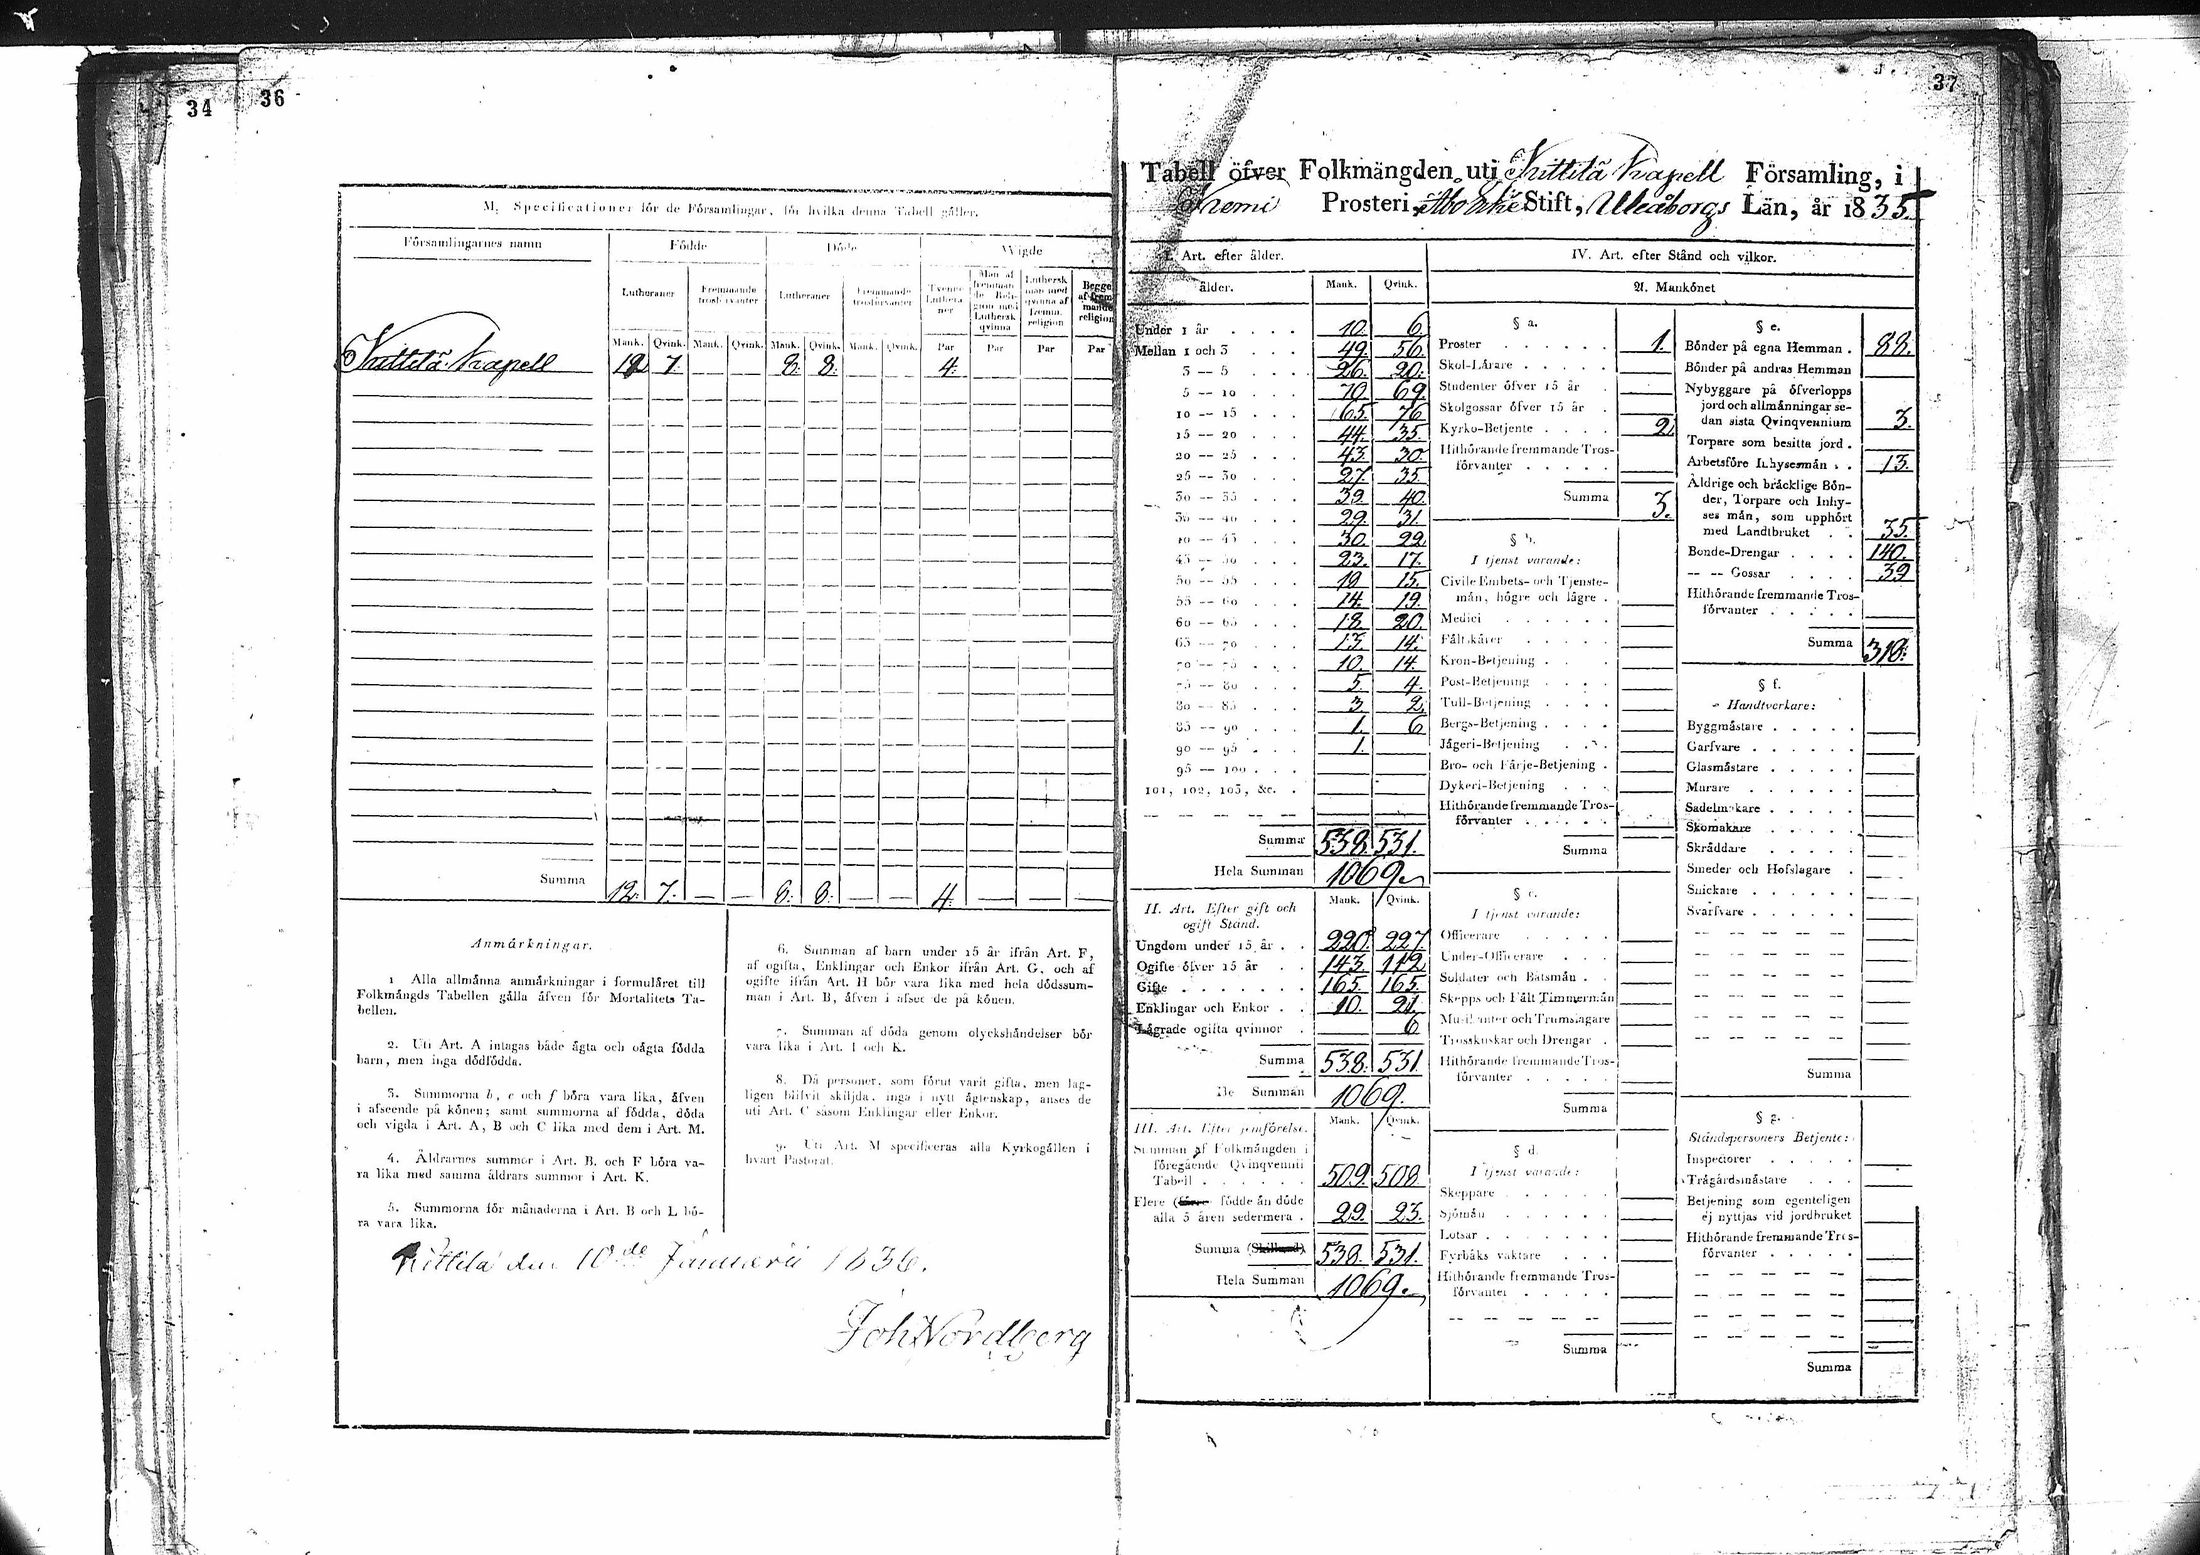 34
36
M. Specificationer för de Församlingar, för hvilka denna Tabell gäller.
Församlingarnes namn Födde Döde Wigde
Lutheraner Fremmande trosförvanter Lutheraner Fremmande trosförvanter Tvenne Lutheraner Man af fremmande Religion med Luthersk qvinna Luthersk man med qvinna af fremm. religion Begge af fremmande religion
Mank. Qvink. Mank. Qvink. Mank. Qvink. Mank. Qvink. Par Par Par Par
Kittilä Kapell 12 7. 8. 8. 4.
Summa 12. 7. — — 8. 8. — — 4. — — —
Anmärkningar.
1 Alla allmänna anmärkningar i formuläret till
Folkmängds Tabellen gälla äfven för Mortalitets Ta-
bellen.
2. Uti Art. A intagas både ägta och oägta födda
barn, men inga dödfödda.
3. Summorna b, e och f böra vara lika, äfven
i afseende på könen; samt summorna af födda, döda
och vigda i Art. A, B och C lika med dem i Art. M.
4. Åldrarnes summor i Art. B. och F böra va-
ra lika med samma åldrars summor i Art. K.
5. Summorna för månaderna i Art. B och L bö-
ra vara lika.
6. Summan af barn under 15 år ifrån Art. F,
af ogifta, Enklingar och Enkor ifrån Art. G, och af
ogifte ifrån Art. H bör vara lika med hela dödssum-
man i Art. B, äfven i afseende på könen.
7. Summan af döda genom olyckshändelser bör
vara lika i Art. I och K.
8. Då personer, som förut varit gifta, men lag-
ligen blifvit skiljda, ingå i nytt ägtenskap, anses de
uti Art. C såsom Enklingar eller Enkor.
9. Uti Art. M specificeras alla Kyrkogällen i
hvart Pastorat.
Kittilä den 10de Januarii 1836.
Joh Nordberg
37
Tabell öfver Folkmängden uti Kittilä Kapell Församling, i
Kemi Prosteri, Åbo Erke Stift, Uleåborgs Län, år 1835.
I. Art. efter ålder.
ålder. Mank. Qvink.
Under 1 år . . . . 10. 6.
Mellan 1 och 3 . . . 49. 56.
3 — 5 . . . . 26. 20.
5 — 10 . . . 70. 69.
10 — 15 . . . 65. 76
15 — 20 . . . 44. 35.
20 — 25 . . . 43. 30.
25 — 30 . . . 27. 35.
30 — 35 . . . 39. 40.
35 — 40 . . . 29. 31.
40 — 45 . . . 30. 22
45 — 50 . . . 23. 17.
50 — 55 . . . 19 15.
55 — 60 . . . 14. 19.
60 — 65 . . . 18. 20.
65 — 70 . . . 13. 14.
70 — 75 . . . 10. 14.
75 — 80 . . . 5. 4.
80 — 85 . . . 3 2.
85 — 90 . . . 1. 6
90 — 95 . . . 1.
95 — 100 . . .
101, 102, 103, &c. .
Summa 538. 531.
Hela Summan 1069.
II. Art. Efter gift och
ogift Stånd. Mank. Qvink.
Ungdom under 15 år . . 220. 227.
Ogifte öfver 15 år . . 143. 112
Gifte . . . . . . . 165. 165.
Enklingar och Enkor . . 10. 21.
Lägrade ogifta qvinnor . 6
Summa 538. 531
Summan 1069.
III. Art. Efter jemförelse. Mank. Qvink.
Summan af Folkmängden i
föregående Qvinqvennii
Tabell . . . . . . 509. 508
Flere (färre födde än döde
alla 5 åren sedermera . 29. 23.
Summa (Skillnad) 538. 531.
Hela Summan 1069.
IV. Art. efter Stånd och vilkor.
A. Mankönet
§ a.
Proster . . . . . . 1.
Skol-Lärare . . . . .
Studenter öfver 15 år .
Skolgossar öfver 15 år .
Kyrko-Betjente . . . . 2.
Hithörande fremmande Tros-
förvanter . . . . .
Summa 3.
§ b.
I tjenst varande:
Civile Embets- och Tjenste-
män, högre och lägre .
Medici . . . . . .
Fältskärer . . . . .
Kron-Betjening . . .
Post-Betjening . . . .
Tull-Betjening . . . .
Bergs-Betjening . . . .
Jägeri-Betjening . . .
Bro- och Färje-Betjening .
Dykeri-Betjening . . .
Hithörande fremmande Tros-
förvanter . . . . .
Summa
§ c.
I tjenst varande:
Officerare . . . . .
Under-Officerare . . .
Soldater och Båtsmän . .
Skepps och Fält Timmermän
Musikanter och Trumslagare
Trosskuskar och Drengar .
Hithörande fremmande Tros-
förvanter . . . . .
Summa
§ d.
I tjenst varande:
Skeppare . . . . . .
Sjömän . . . . . .
Lotsar . . . . . . .
Fyrbåks vaktare . . .
Hithörande fremmande Tros-
förvanter . . . . .
Summa
§ e.
Bönder på egna Hemman . 88.
Bönder på andras Hemman
Nybyggare på öfverlopps
jord och allmänningar se-
dan sista Qvinqvennium 3.
Torpare som besitta jord .
Arbetsföre Inhysesmän . . 13.
Åldrige och bräcklige Bön-
der, Torpare och Inhy-
ses män, som upphört
med Landtbruket . . 35.
Bonde-Drengar . . . . 140.
— — Gossar . . . . 39
Hithörande fremmande Tros-
förvanter . . . . .
Summa 318.
§ f.
Handtverkare:
Byggmästare . . . . .
Garfvare . . . . . .
Glasmästare . . . . .
Murare . . . . . .
Sadelmakare . . . . .
Skomakare . . . . .
Skräddare . . . . .
Smeder och Hofslagare .
Snickare . . . . . .
Svarfvare . . . . . .
Summa
§ g.
Ståndspersoners Betjente:
Inspectorer . . . . .
Trägårdsmästare . . .
Betjening som egenteligen
ej nyttjas vid jordbruket
Hithörande fremmande Tros-
förvanter . . . . .
Summa